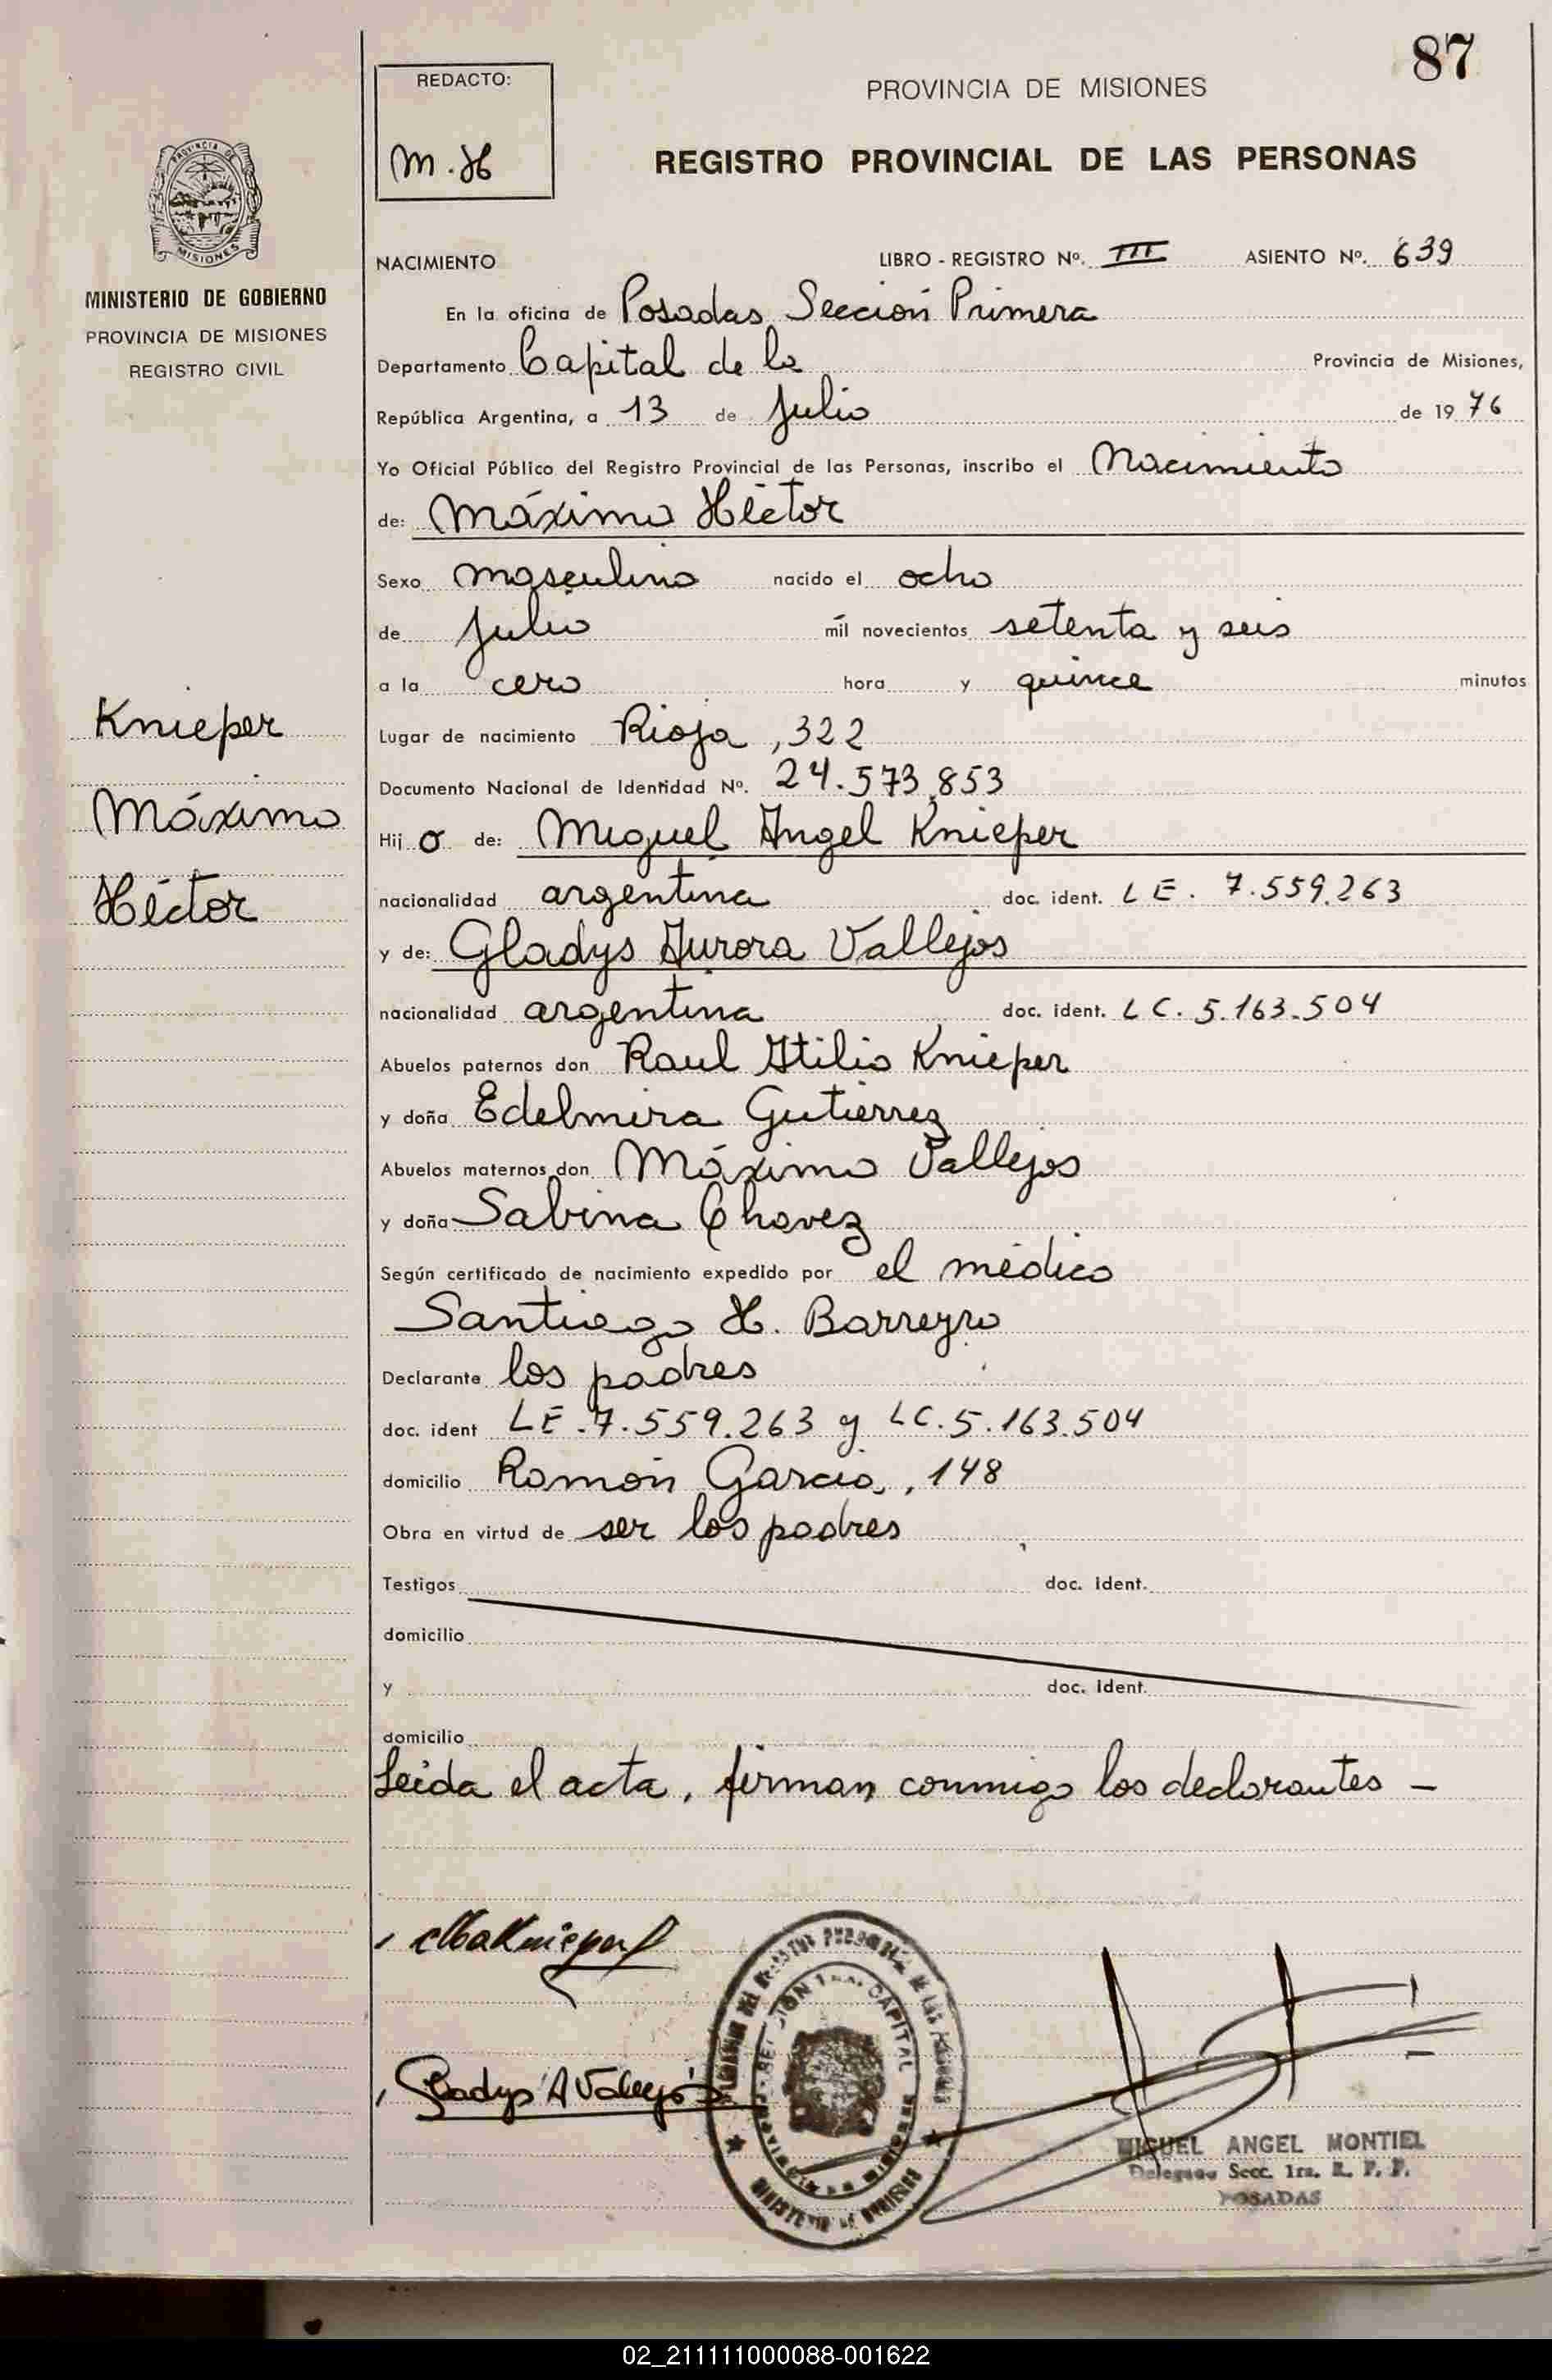 87
REDACTO:
M.H
PROVINCIA DE MISIONES
REGISTRO PROVINCIAL DE LAS PERSONAS
PROVINCIA DE
MISIONES
MINISTERIO DE GOBIERNO
PROVINCIA DE MISIONES
REGISTRO CIVIL
NACIMIENTO LIBRO - REGISTRO Nº. III ASIENTO Nº. 639
En la oficina de Posadas Sección Primera
Departamento Capital de la Provincia de Misiones,
República Argentina, a 13 de Julio de 1976
Yo Oficial Público del Registro Provincial de las Personas, inscribo el Nacimiento
de: Máximo Héctor
Sexo masculino nacido el ocho
de Julio mil novecientos setenta y seis
a la cero hora y quince minutos
Knieper
Máximo
Héctor
Lugar de nacimiento Rioja, 322
Documento Nacional de Identidad Nº. 24.573.853
Hijo de: Miguel Angel Knieper
nacionalidad argentina doc. ident. LE. 7.559.263
y de: Gladys Aurora Vallejos
nacionalidad argentina doc. ident. LC. 5.163.504
Abuelos paternos don Raul Atilio Knieper
y doña Edelmira Gutierrez
Abuelos maternos don Máximo Vallejos
y doña Sabina Chavez
Según certificado de nacimiento expedido por el médico
Santiago H. Barreyro
Declarante los padres
doc. ident LE.7.559.263 y LC.5.163.504
domicilio Ramón Garcia, 148
Obra en virtud de ser los padres
Testigos doc. ident.
domicilio
y doc. ident.
domicilio
Leida el acta, firman conmigo los declarantes -
Gladys A Vallejos
CAPITAL
MIGUEL ANGEL MONTIEL
Delegado Secc. 1ra. R. P. P.
POSADAS
02_211111000088-001622